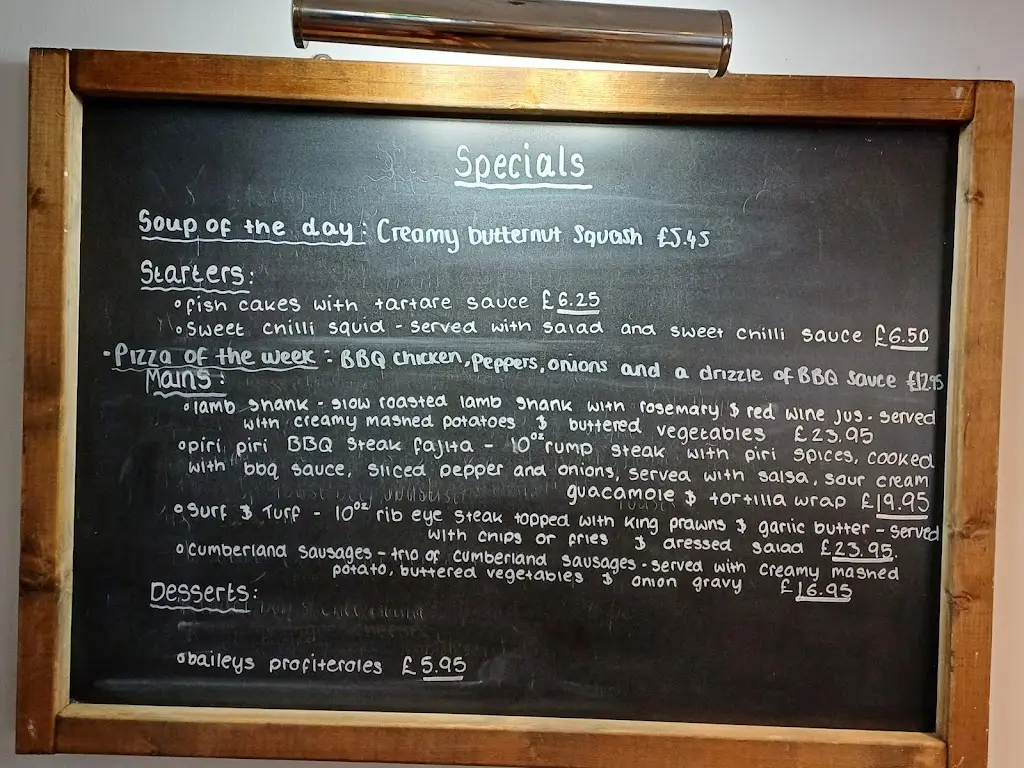 Specials
Soup of the day: Creamy butternut Squash £5.45
Starters:
fish cakes with tartare sauce £6.25
Sweet chilli squid - served with salad and sweet chilli sauce £6.50
Pizza of the week: BBQ chicken, Peppers, onions and a drizzle of BBQ Sauce £12.95
Mains:
lamb shank - slow roasted lamb shank with rosemary & red wine jus. served
with creamy mashed potatoes & buttered vegetables £23.95
piri piri BBQ Steak fajita - 10oz rump steak with piri spices, cooked
with bbq sauce, sliced pepper and onions, served with salsa, sour cream
guacamole & tortilla wrap £19.95
Surf & Turf - 10oz rib eye steak topped with King prawns & garlic butter - served
with chips or fries & dressed salad £23.95.
Cumberland Sausages - trio of cumberland sausages - served with creamy mashed
potato, buttered vegetables & onion gravy £16.95
Desserts:
baileys profiteroles £5.95